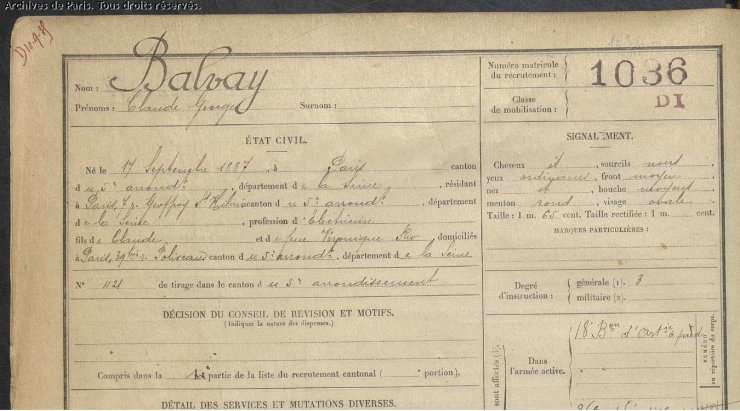 Archives de Paris. Tous droits réservés.
Nom : Balvay
Prénoms : Claude Georges Surnom :
Numéro matricule du recrutement : 1036
Classe de mobilisation : DI
ÉTAT CIVIL.
Né le 17 Septembre 1887, à Paris canton
du 5e arrondt, département de la Seine, résidant
à Paris, 7 r. Geoffroy St Hilaire canton du 5e arrondt, département
de la Seine, profession d'Electricien
fils de Claude et de feue Véronique, domiciliés
à Paris, 39bis r. Poliveau canton du 5e arrondt, département de la Seine
N° 1121 de tirage dans le canton du 5e arrondissement
DÉCISION DU CONSEIL DE REVISION ET MOTIFS.
(Indiquer la nature des dispenses.)
Compris dans la partie de la liste du recrutement cantonal ( portion).
DÉTAIL DES SERVICES ET MUTATIONS DIVERSES.
SIGNALEMENT.
Cheveux et, sourcils noirs
yeux ordinaires, front moyen
nez et, bouche moyens
menton rond, visage ovale
Taille : 1 m. 65 cent. Taille rectifiée : 1 m. cent.
MARQUES PARTICULIÈRES :
Degré d'instruction : générale (1). 3
militaire (2).
Dans l'armée active.
18e Bon d'Artie à pied
NUMÉRO
au répertoire du corps.
sont affectés (3).